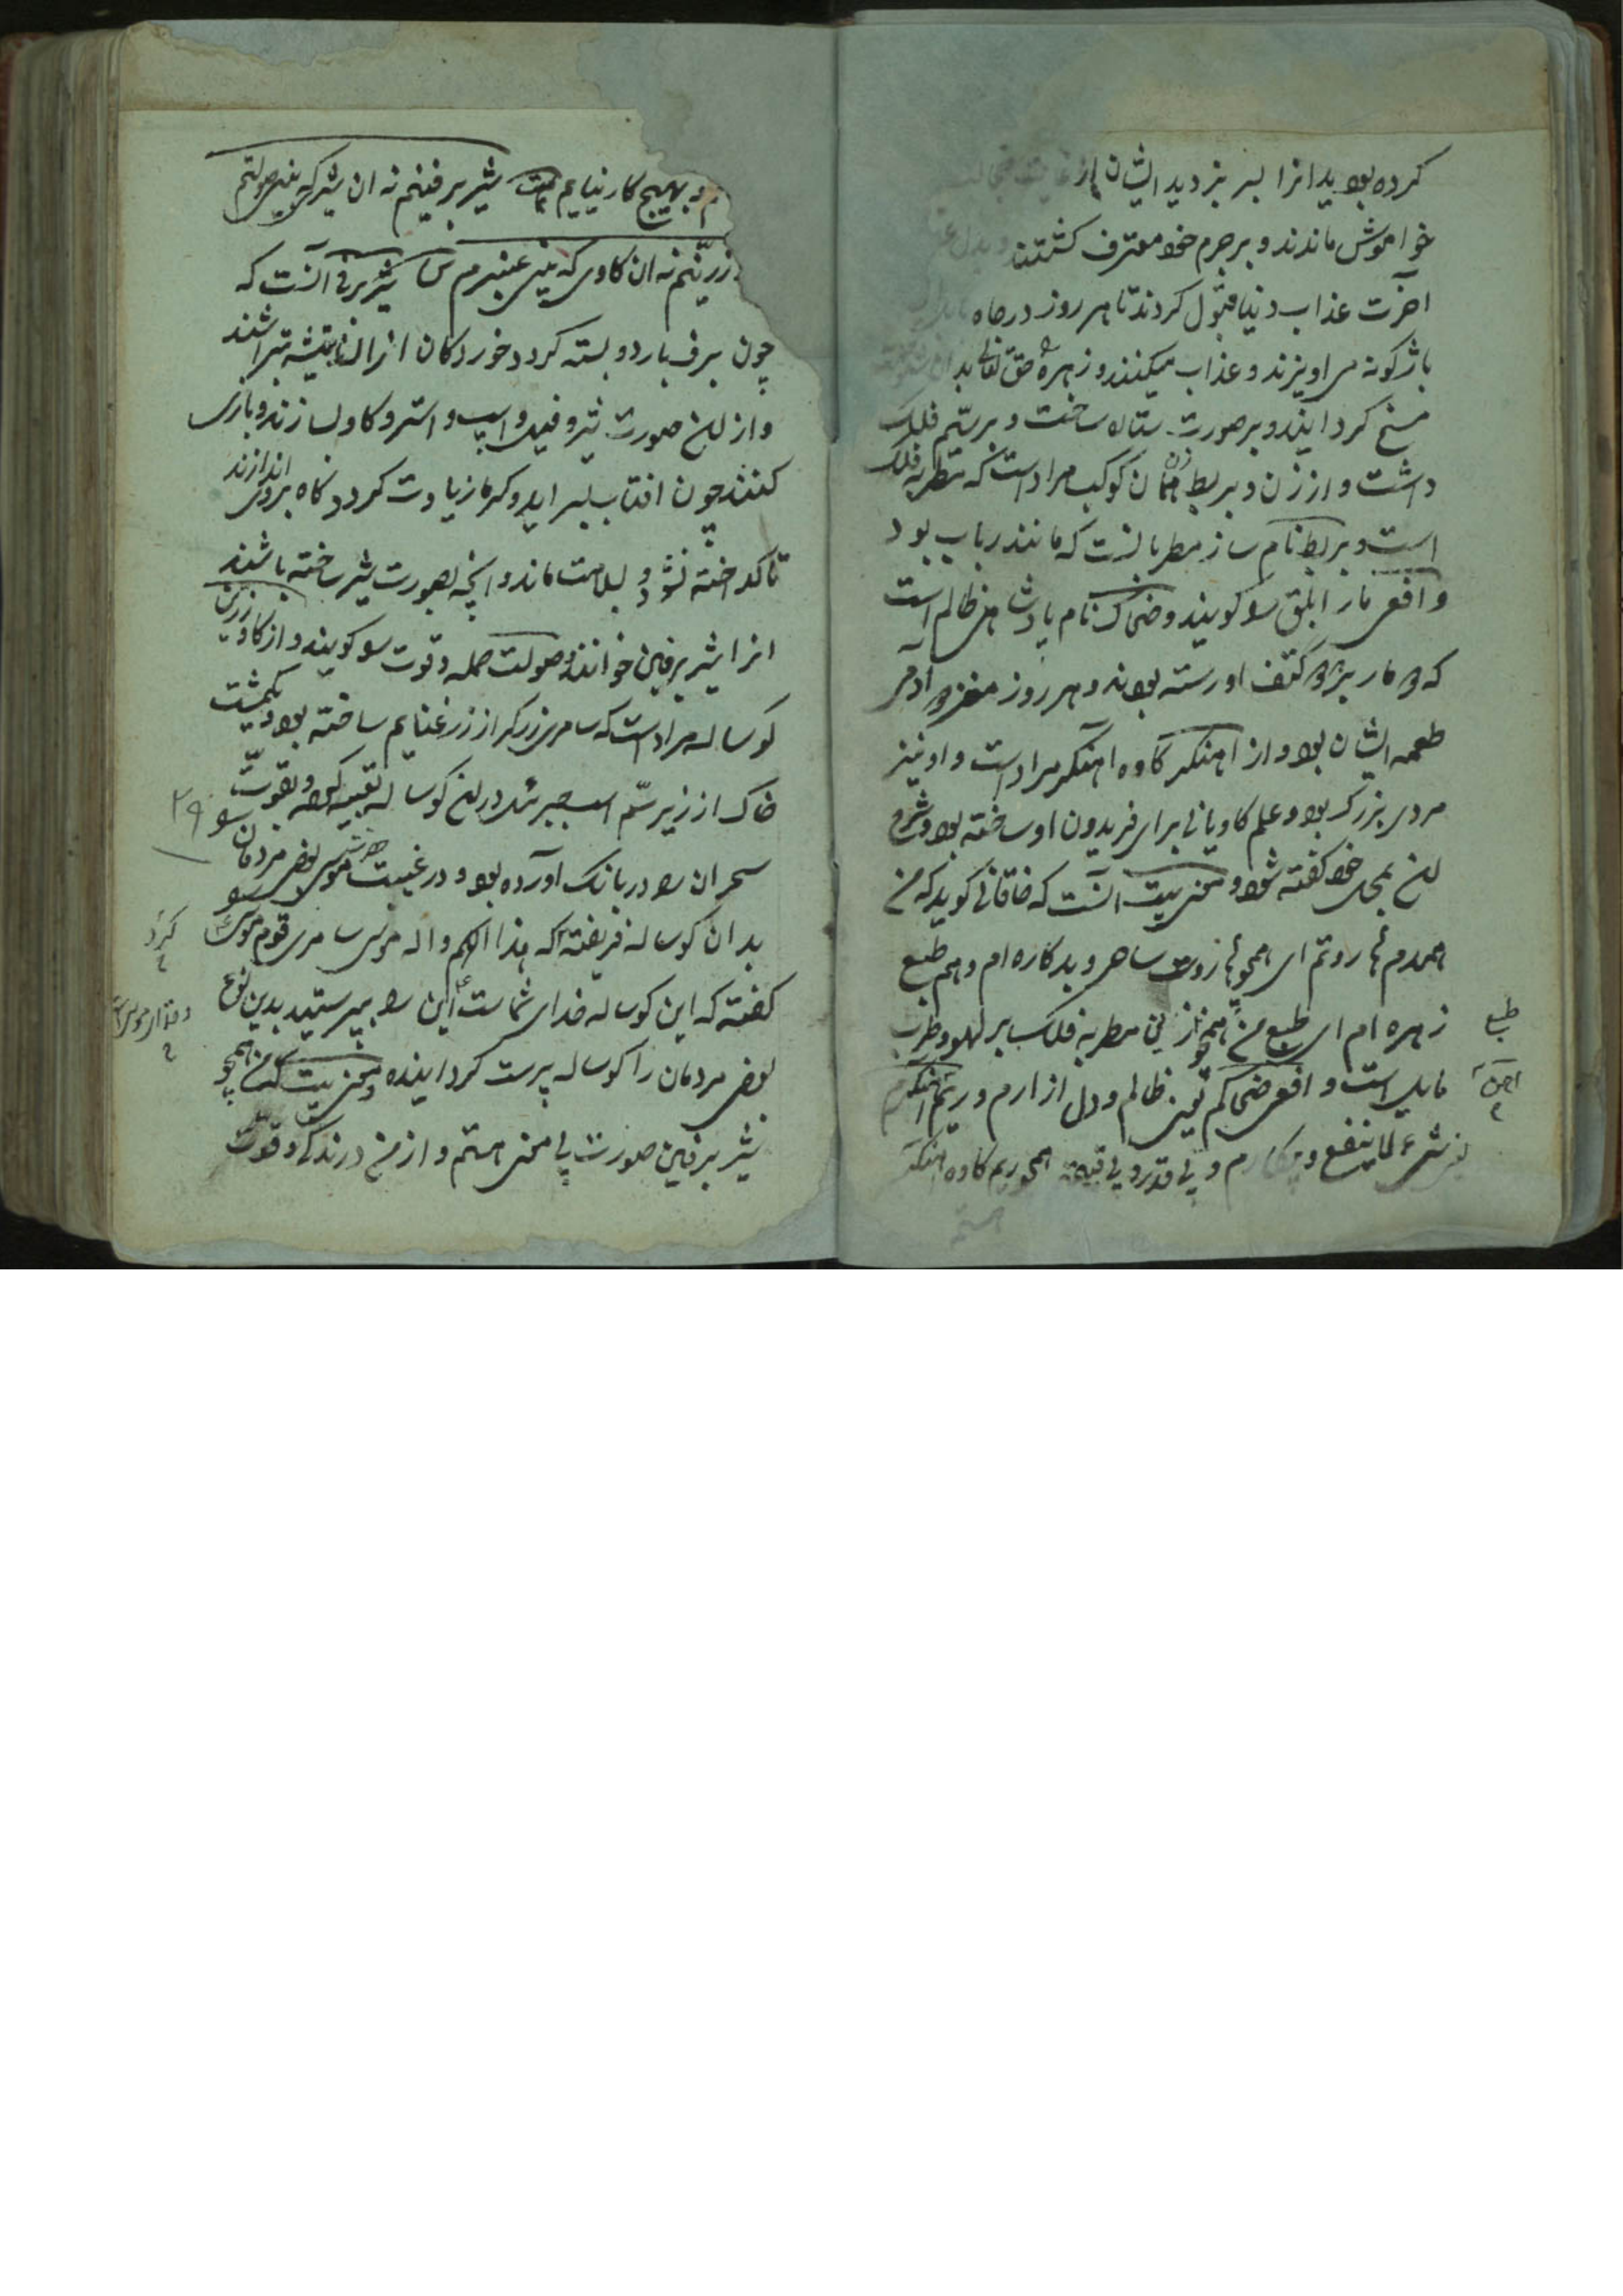 کرده بود بدانرا بسر بزدید ایشان از
خواموش ماندند و برجرم خود معترف کشتند
اخرت عذاب دنیا قبول کردند تا هر روز در چاه
باژکونه می اویزند و عذاب میکنند و زهره حق تعالی
مسخ کردانید و بر صورت ستاره ساخت و بر سیّم فلک
داشت و از زن بربط زن همان کوکب مراد است که مطربه فلک
است و بربط نام ساز مطربانست که مانند رباب بود
و افعی مار ابلق را کویند و ضحاک نام پادشاهی ظالم است
که دو مار بر دو کتف او رسته بودند و هر روز مغز دو آدمی
طعمه ایشان بود و از اهنکر کاوه اهنکر مراد است و او نیز
مردی بزرک بود و علم کاویانی برای فریدون او ساخته بود و شرح
این بجای خود کفته شود و معنی بیت آنست که خاقانی کوید که من
همدم هاروتم ای همچو هاروت ساحر و بدکاره ام و هم طبع
زهره ام ای طبع من همچو زنی مطربه فلک بر لهو و طرب
مایل است و افعی ضحاکم یعنی ظالم و دل ازارم و ریم اهنکرم
یعنی شیء لا ینفع و بیکارم و بی قدر و بی قیمة همچو ریم کاوه اهنکر
هستم
طبع
و بهیچ کار نیایم بیت شیر برفینم نه ان شیری که بینی صولتم
زرینم نه ان کاوی که بینی عنبرم ش شیر برفی آنست که
چون برف بارد و بسته کردد خوردکان از ان بتیشه تراشند
و از این صورت شیر و فیل و اسپ و استر و کاو بسازند و بازی
کنند چون افتاب براید و کرما زیادت کردد کاه بروی اندازند
تا کداخته نشود و بسلامت ماند و انچه بصورت شیر ساخته باشند
انرا شیر برفین خوانند و صولت حمله و قوت را کویند و از کاو زرین
کوساله مراد است که سامری زرکر از زر غنایم ساخته بود و یکمشت
خاک از زیر سّم اسپ جبرئیل در این کوساله تعبیه کرده و بقوت
سحر ان را در بانک آورده بود و در غیبت حضرت موسی بعضی مردمان را
بدان کوساله فریفته که هذا الهکم و اله موسی سامری قوم موسی را
کفته که این کوساله خدای شماست این را بپرستید بدین نوع
بعضی مردمان را کوساله پرست کردانیده و معنی بیت که من همچو
شیر برفین صورت بی معنی هستم و از من درندکی و قوت
۲۹
کرد